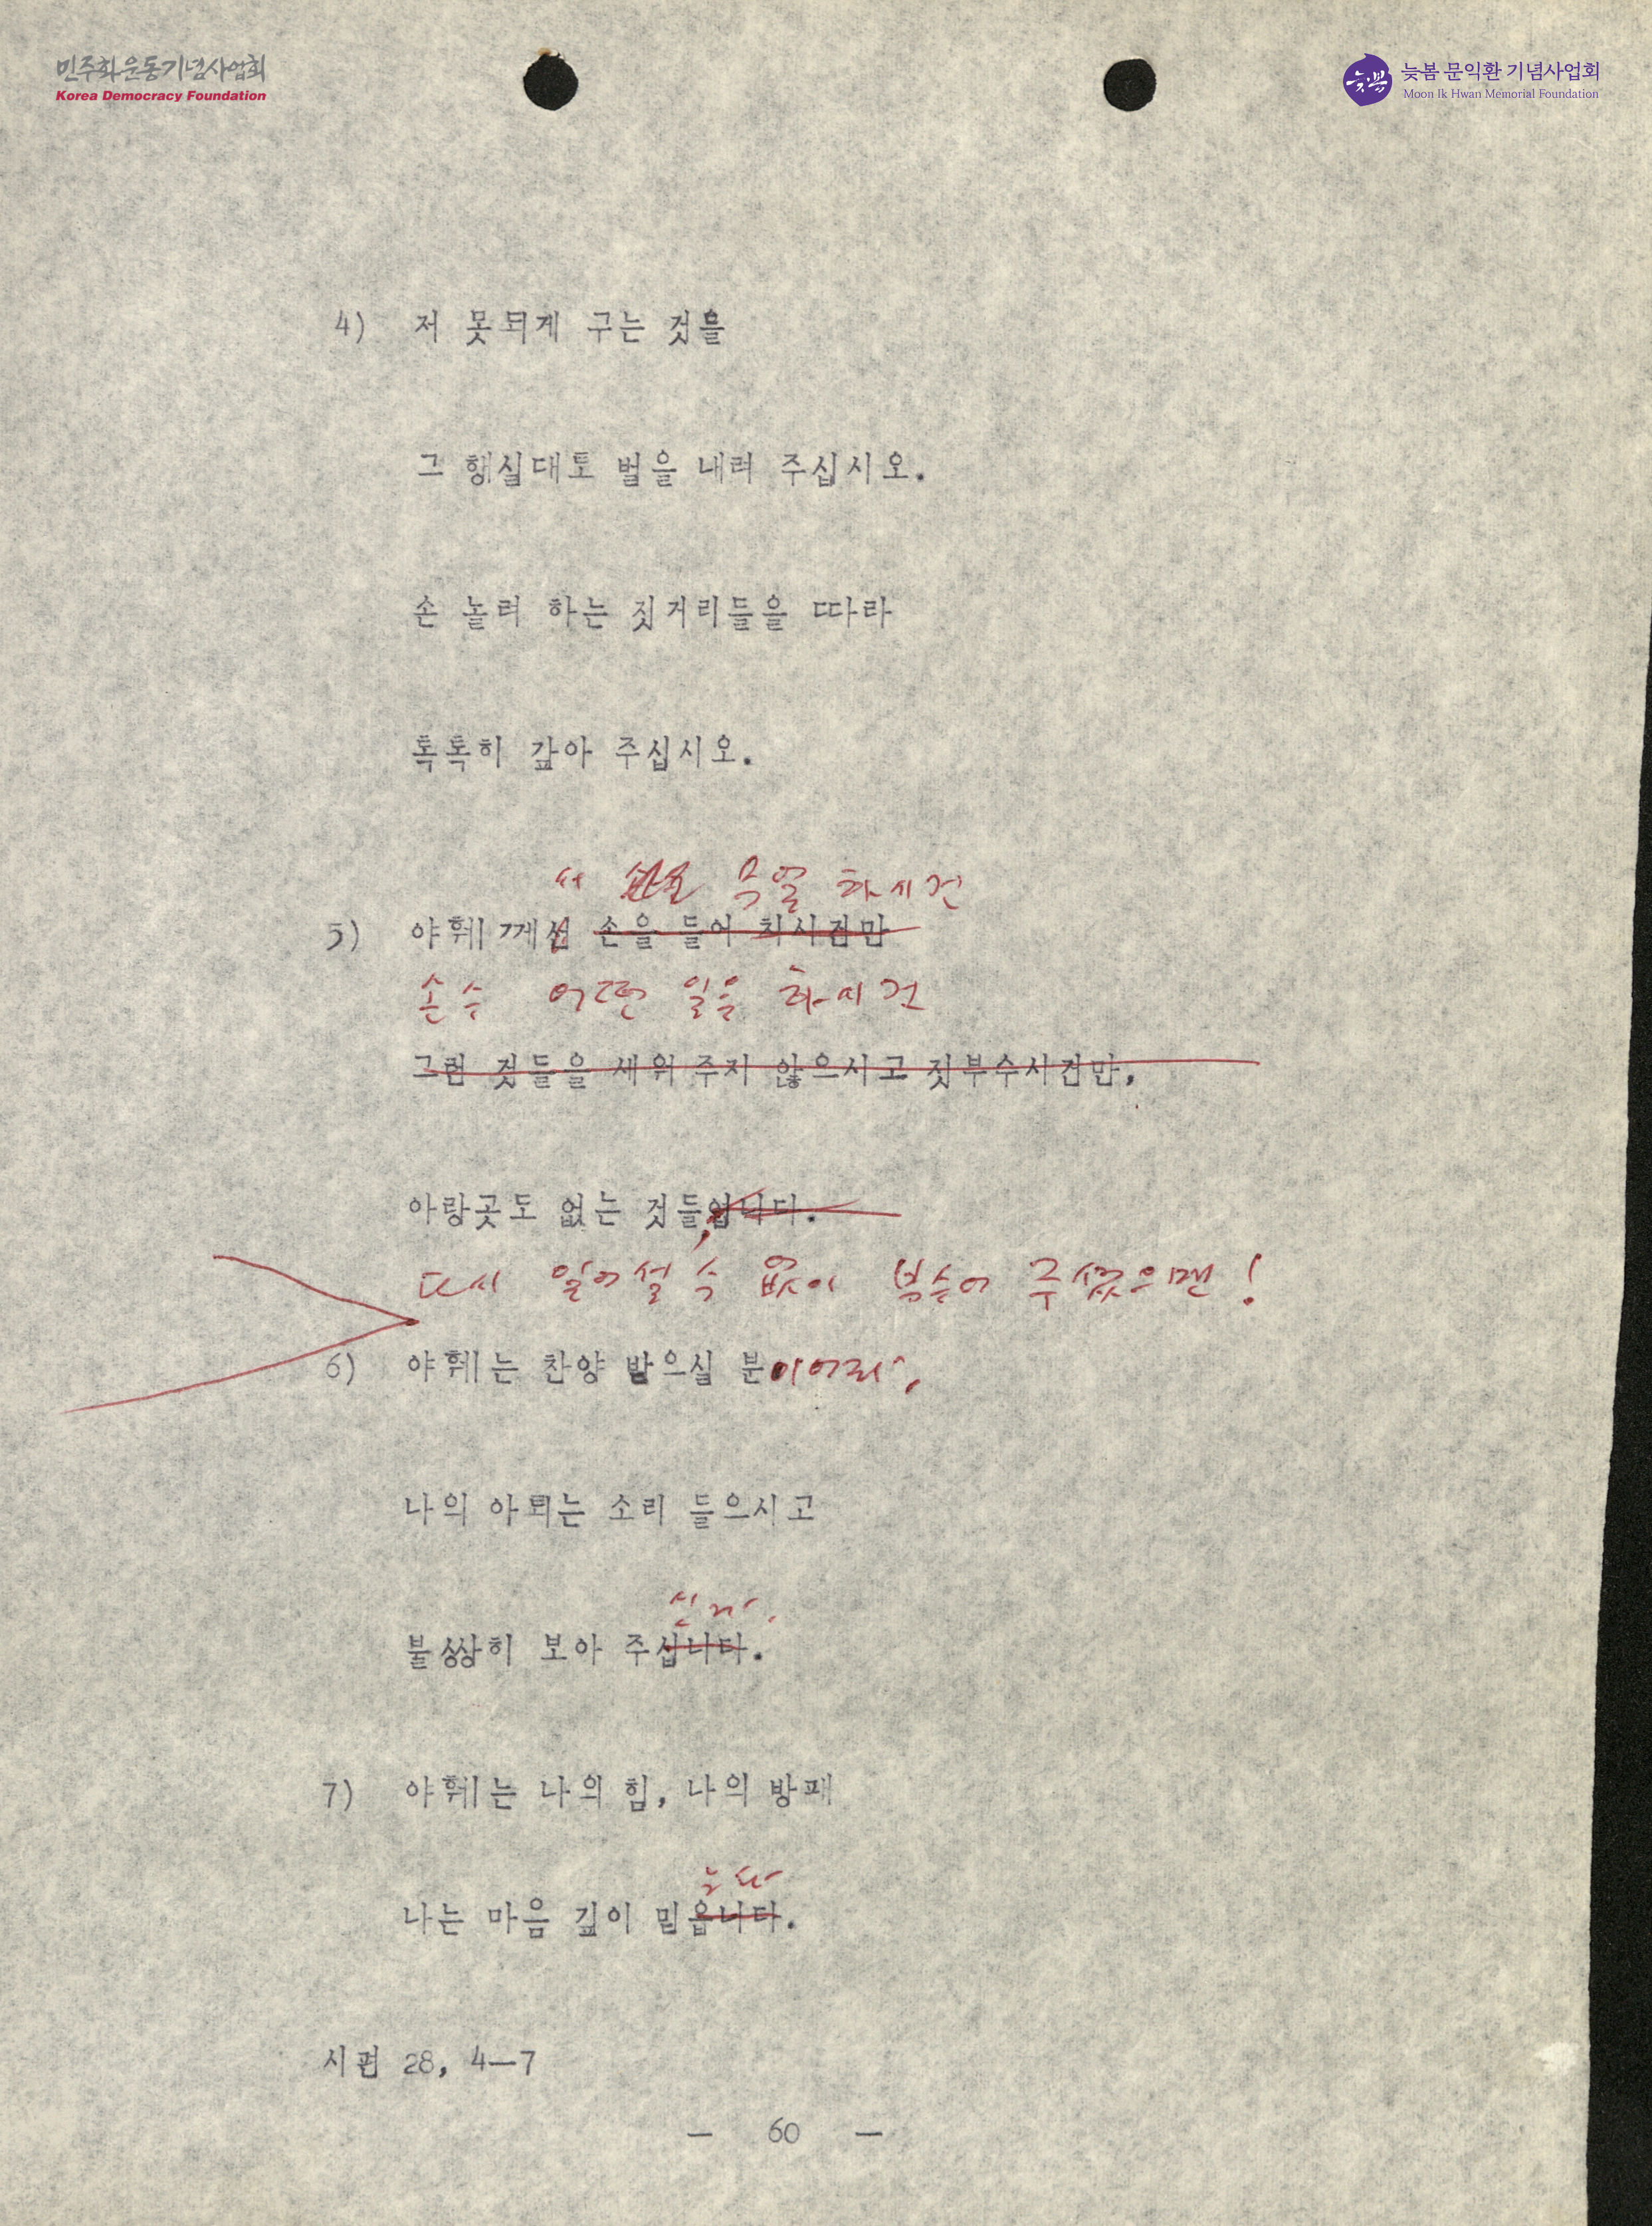 민주화운동기념사업회
Korea Democracy Foundation
늦봄 문익환 기념사업회
Moon Ik Hwan Memorial Foundation
4) 저 못되게 구는 것을
그 행실대로 벌을 내려 주십시오.
손 놀려 하는 짓거리들을 따라
톡톡히 갚아 주십시오.
서 무얼 하시건
5) 야훼께선 손을 들어 치시건만
손수 어떤 일을 하시건
그런 것들을 세워 주지 않으시고 짓부수시건만,
아랑곳도 없는 것들입니다.
다시 일어설 수 없이 부숴 주셨으면!
6) 야훼는 찬양 받으실 분이어라,
나의 아뢰는 소리 들으시고
신다.
불쌍히 보아 주십니다.
7) 야훼는 나의 힘, 나의 방패
는다
나는 마음 깊이 믿읍니다.
시편 28, 4—7
— 60 —